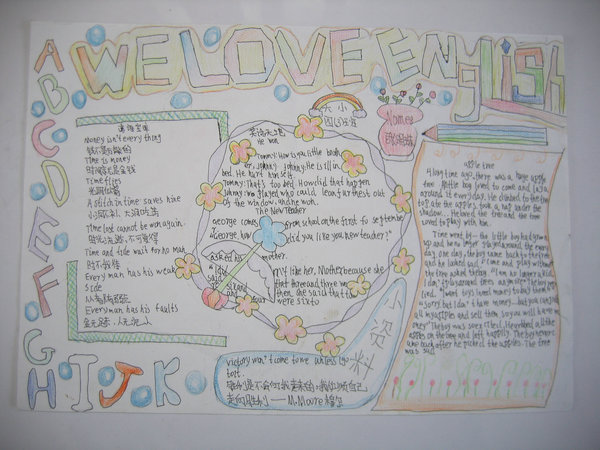 WE LOVE English
A
B
C
D
E
F
G
H I J K
Money isn't everything
Time is money
时间就是金钱
Time flies
光阴似箭
A stitch in time saves nine
Time lost cannot be won again
时光流逝,不可复得
Time and tide wait for no man
时不我待
Every man has his weak
side
人人都有弱点
Every man has his faults
金无足赤,人无完人
大小
Name:
He won
Tommy: How is you little broth
er, Johnny Johnny: He is ill in
bed. He hurt himself.
Tommy: That's too bad. How did that happen
Johnny: We played who could lean furthest out
of the window, and he won.
The New Teacher
George comes from school on the first of September
"George, how did you like you new teacher?"
asked his mother.
"I didn't like her, Mother, because she
said that three and three were
six and then she said that
four and two were six too
victory won't come to me unless I go
to it.
胜利是不会向我走来的,我必须自己
走向胜利 —— M.Moore 穆尔
小资料
apple tree
A long time ago, there was a large apple
tree. A little boy loved to come and lay a
around it every day. He climbed to the tree
top ate the apples, took a nap under the
shadow... He loved the tree and the tree
loved to play with him.
Time went by... the little boy had grown
up and he no longer played around the every
day. One day, the boy came back to the tree
and he looked sad. "Come and play with me"
the tree asked the boy. "I am no longer a kid,
I don't play around trees anymore" the boy repl
ied. "I want toys. I need money to buy them."
"Sorry but I don't have money... but you can pick
all my apples and sell them. So you will have mo
ney." The boy was so excited. He grabbed all the
apples on the tree and left happily. The boy never c
ame back after he picked the apples. The tree
was sad.